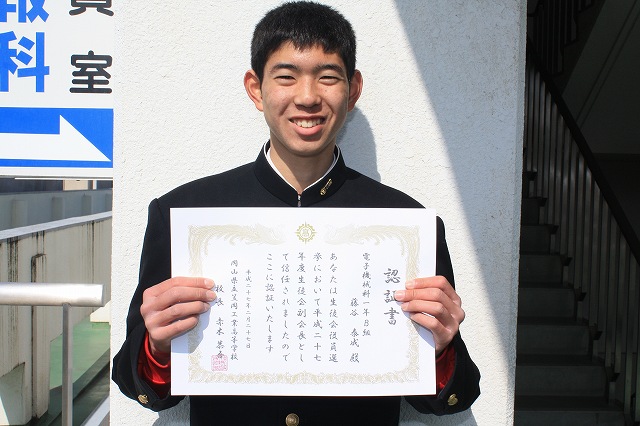 認証書
電子機械科一年B組
藤谷 泰成 殿
あなたは生徒会役員選
挙において平成二十七
年度生徒会副会長とし
て信任されましたので
ここに認証いたします
平成二十七年二月二十七日
岡山県立笠岡工業高等学校
校長
報科
員室